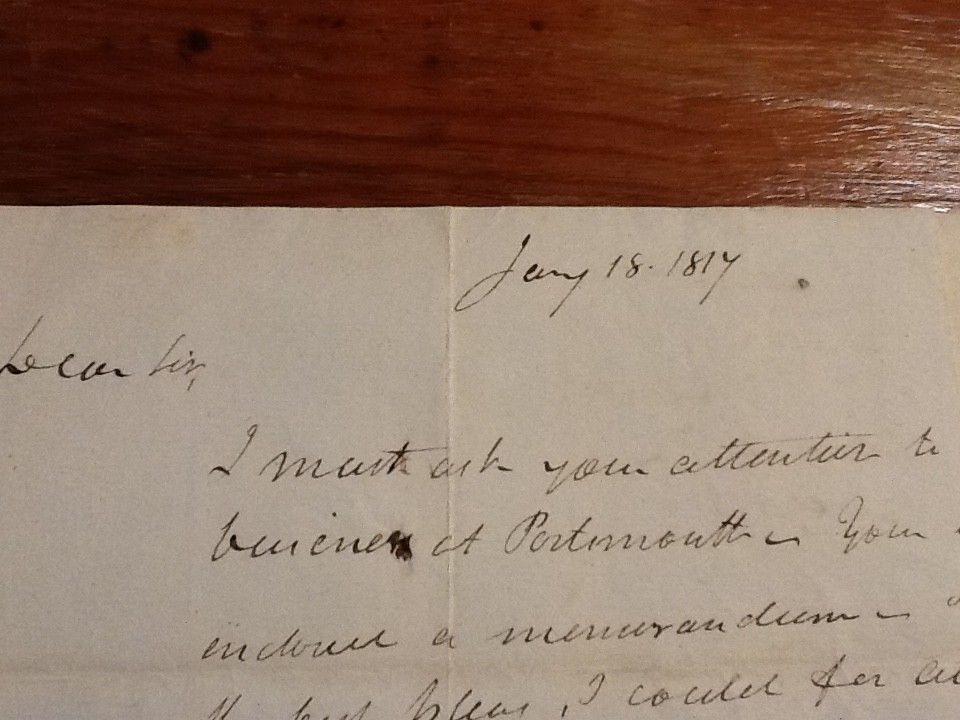 Jany 18. 1817
Dear Sir,
I must ask your attention to
business at Portsmouth – Your
enclosed a memorandum –
the best I could for